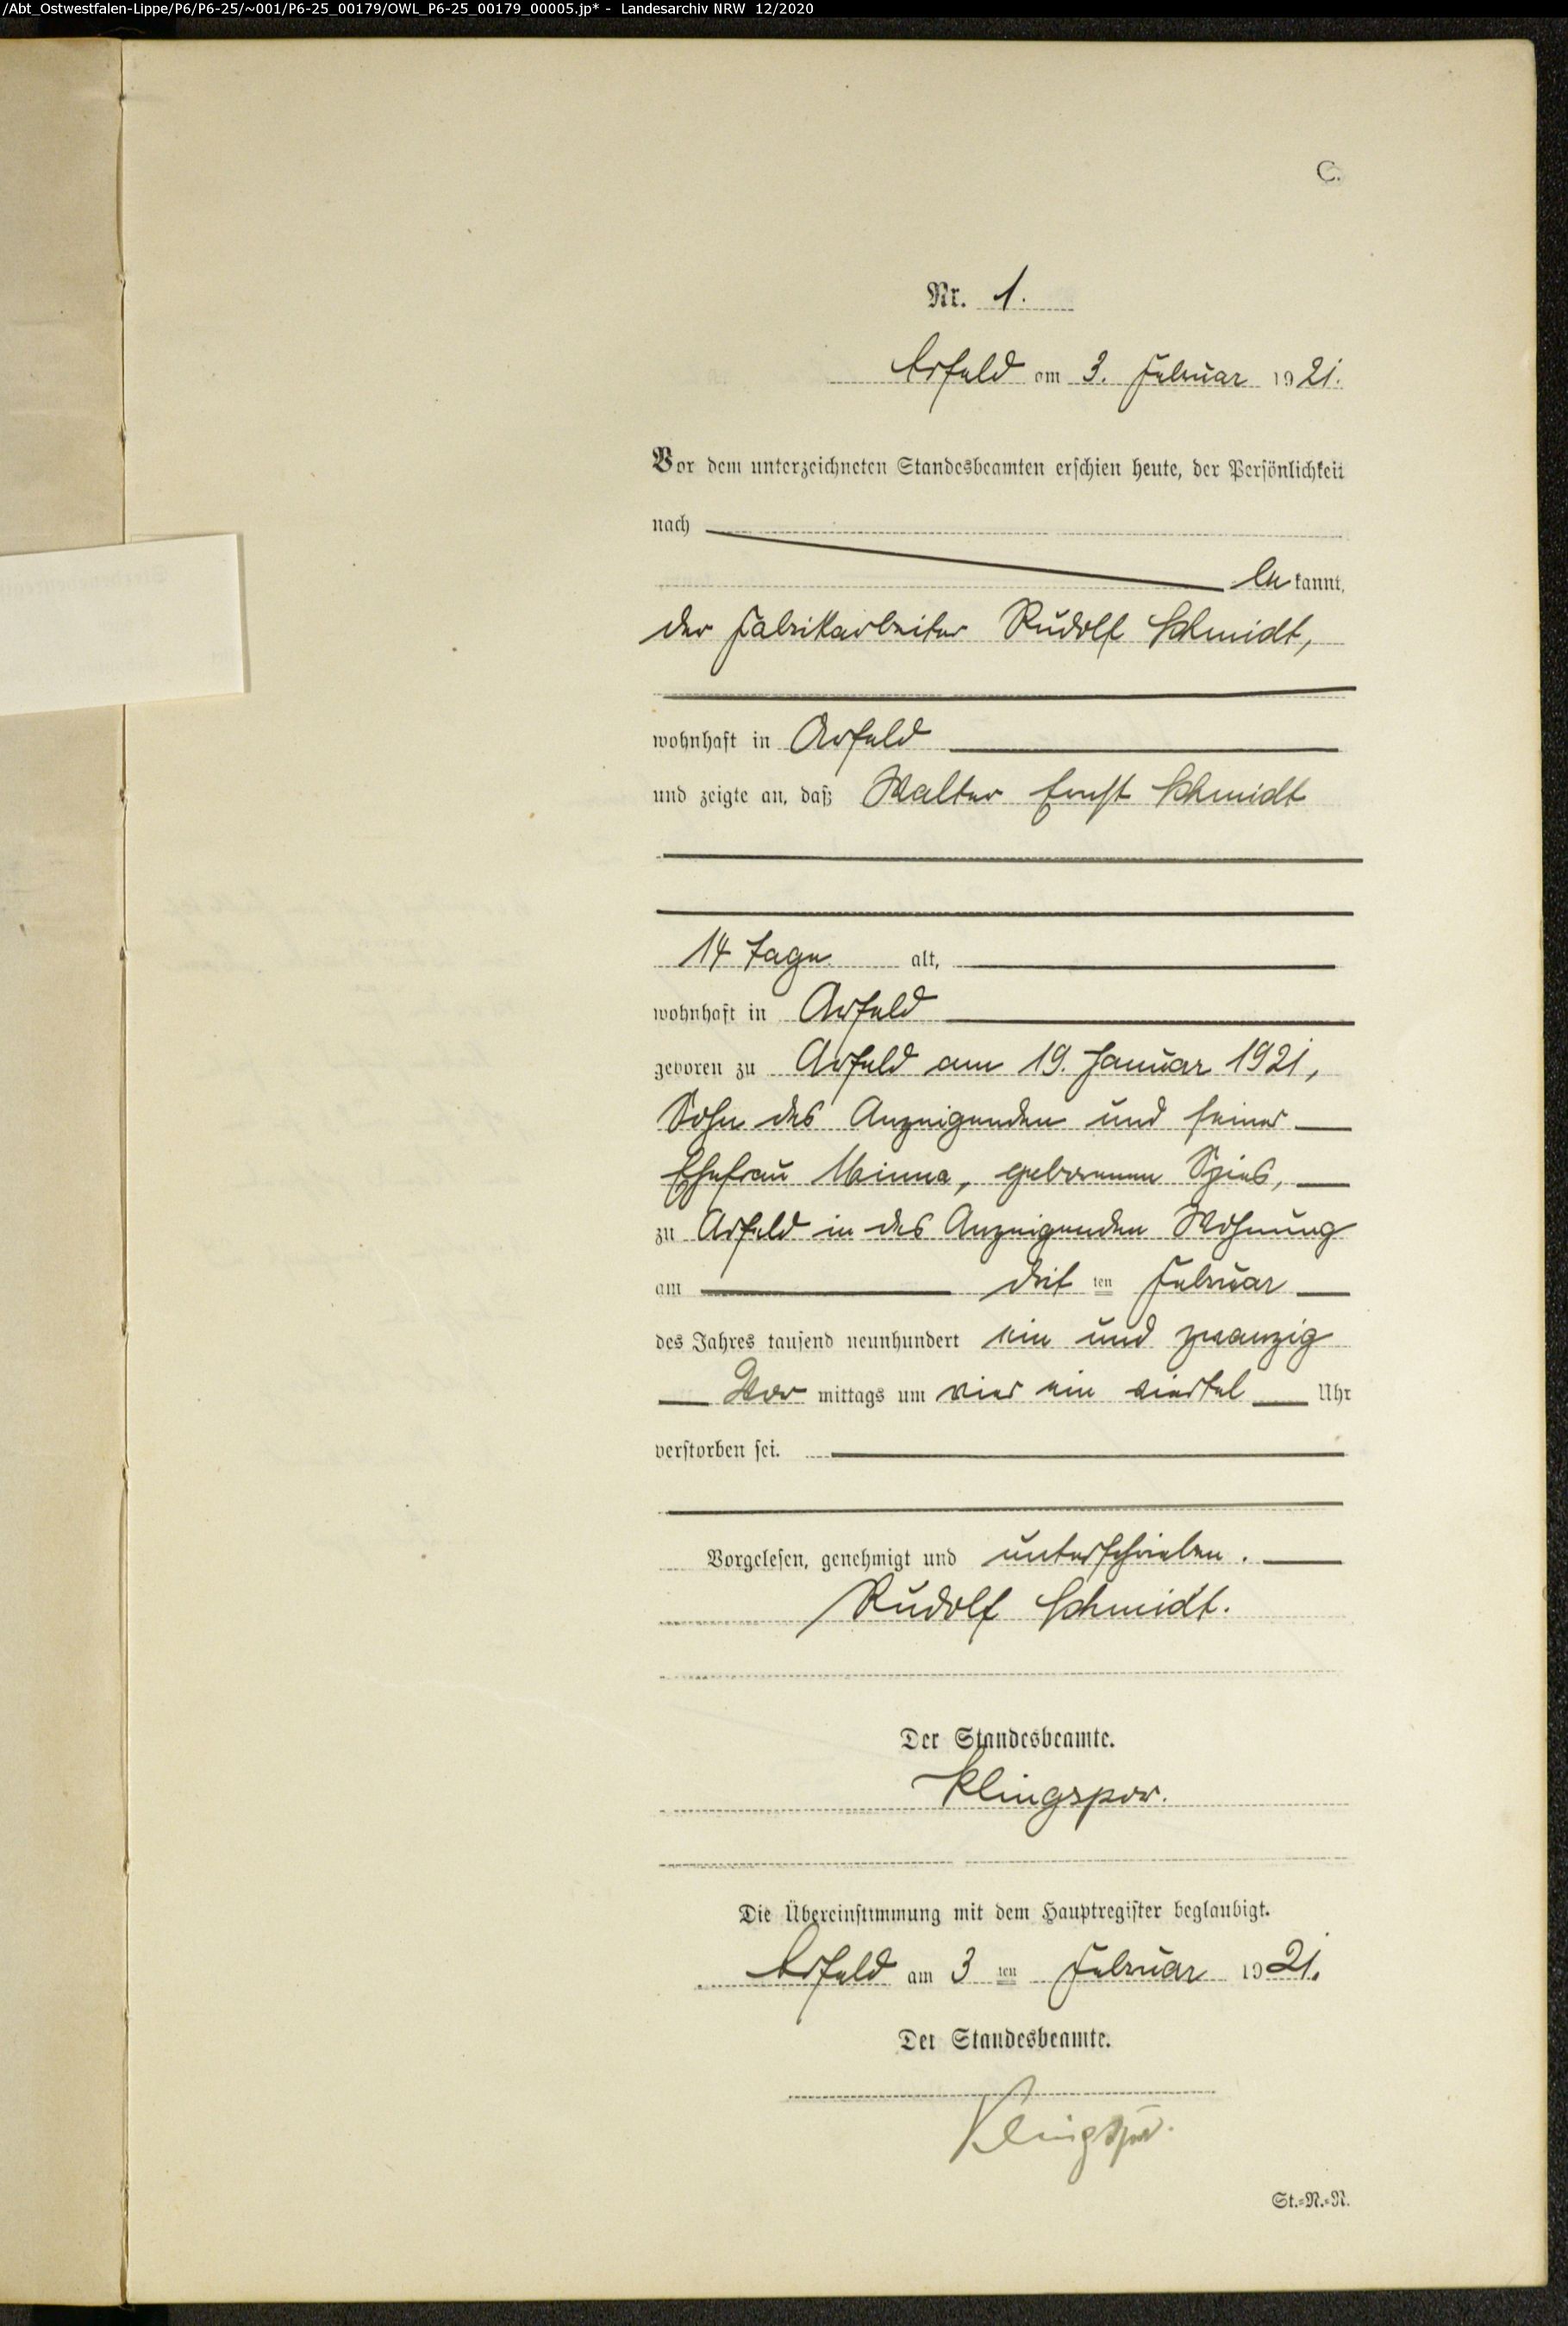 /Abt_Ostwestfalen-Lippe/P6/P6-25/~001/P6-25_00179/OWL_P6-25_00179_00005.jp* - Landesarchiv NRW 12/2020
C.
Nr. 1.
Arfeld am 3. Februar 1921.
Vor dem unterzeichneten Standesbeamten erschien heute, der Persönlichkeit
nach
bekannt,
der Fabrikarbeiter Rudolf Schmidt,
wohnhaft in Arfeld
und zeigte an, daß Walter Ernst Schmidt
14 Tage alt,
wohnhaft in Arfeld
geboren zu Arfeld am 19. Januar 1921,
Sohn des Anzeigenden und seiner
Ehefrau Minna, geborenen Spies,
zu Arfeld in des Anzeigenden Wohnung
am drit ten Februar
des Jahres tausend neunhundert ein und zwanzig
Vor mittags um vier ein viertel Uhr
verstorben sei.
Vorgelesen, genehmigt und unterschrieben.
Rudolf Schmidt.
Der Standesbeamte.
Klingspor.
Die Übereinstimmung mit dem Hauptregister beglaubigt.
Arfeld am 3 ten Februar 1921.
Der Standesbeamte.
Klingspor.
St.=N.=R.